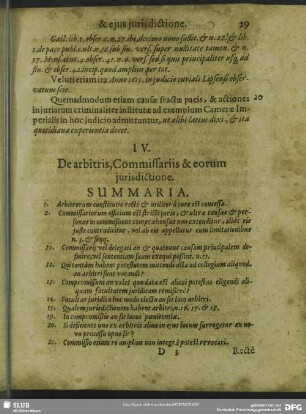 & ejus jurisdictione. 29
Gail. lib. 1. obser. 4. n. 27. ibi decimo nono fallit. & n. 28. & lib.
1. de pace publ. cult. ad sub fin. vers. super nullitate tamen. & n.
37. Mynsi. obser. 41. n. 6. vers. sed si quis principaliter usq; ad
fin. & obser. 42. incip. quod amplius per tot.
Vel uti etiam ita Anno 1611. in judicio curiali Lipsensi obser-
vatum scio.
Quemadmodum etiam causæ fractæ pacis, & actiones 20
injuriarum criminaliter institutæ ad exemplum Cameræ Im-
perialis in hoc judicio admittuntur, ut alibi latius dixi, & ita
quotidiana experientia docet.
IV.
De arbitris, Commissariis & eorum
jurisdictione.
SUMMARIA.
1. Arbitrorum constitutio rectè & utiliter à jure est concessa.
2. Commissariorum officium est stricti juris, & ultra causas & per-
sonas in commissione comprehensas non extenditur, aliàs eis
justè contradicitur, vel ab eis appellatur cum limitationibus
n. 3. & seqq.
10. Commissarii vel delegati an & quatenus causam principalem de-
finire, vel sententiam suam exequi possint. n. 11.
12. Qui tantùm habent potestatem mittendi acta ad collegium aliquod
an arbitri sunt vocandi?
13. Compromissum an valet quo data est alicui potestas eligendi ali-
quam facultatem juridicam revisivè?
14. Facultas juridica hoc modo electa an sit loco arbitri.
15. Qualem jurisdictionem habent arbitri. n. 16. 17. & 18.
19. In compromissis an sit locus pœnitentiæ.
20. Si defic1ente uno ex arbitris alius in ejus locum surrogetur an no-
vo processu opus sit?
21. Commissio etiam re amplius non integrâ potest revocari.
D 3 Rectè
SLUB
DFG